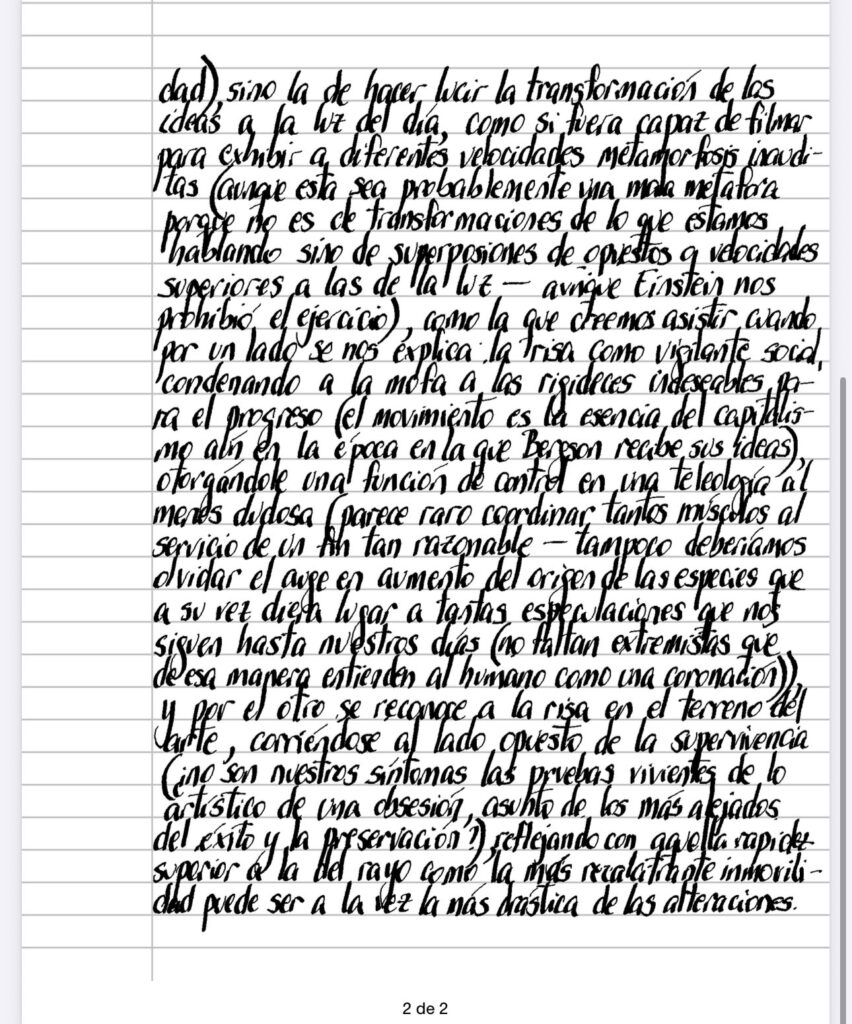 dad), sino la de hacer lucir la transformación de las
ideas a la luz del día, como si fuera capaz de filmar
para exhibir a diferentes velocidades metamorfosis inaudi-
tas (aunque esta sea probablemente una mala metáfora
porque no es de transformaciones de lo que estamos
hablando sino de superposiones de opuestos a velocidades
superiores a las de la luz — aunque Einstein nos
prohibió el ejercicio), como la que creemos asistir cuando
por un lado se nos explica la risa como vigilante social,
condenando a la mofa a las rigideces indeseables pa-
ra el progreso (el movimiento es la esencia del capitalis-
mo aún en la época en la que Bergson recibe sus ideas),
otorgándole una función de control en una teleología al
menos dudosa (parece raro coordinar tantos músculos al
servicio de un fin tan razonable — tampoco deberíamos
olvidar el auge en aumento del origen de las especies que
a su vez diera lugar a tantas especulaciones que nos
siguen hasta nuestros días (no faltan extremistas que
de esa manera entienden al humano como una coronación)),
y por el otro se reconoce a la risa en el terreno del
arte, corriéndose al lado opuesto de la supervivencia
(¿no son nuestros síntomas las pruebas vivientes de lo
artístico de una obsesión, asunto de los más alejados
del éxito y la preservación?), reflejando con aquella rapidez
superior a la del rayo como la más recalcitrante inmovili-
dad puede ser a la vez la más drástica de las alteraciones.
2 de 2